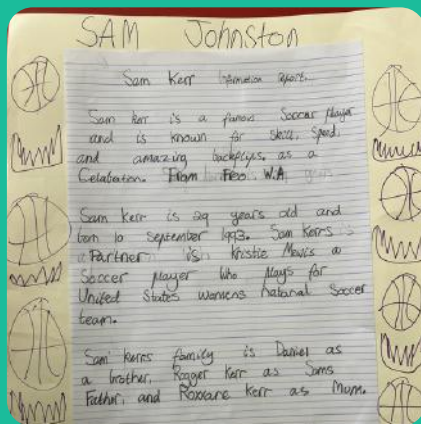 SAM Johnston
Sam Kerr Information report.
Sam Kerr is a famous Soccer player
and is known for skill, speed,
and amazing backflips. as a
Celabration. From Freo W.A,
Sam Kerr is 29 years old and
born 10 september 1993. Sam Kerrs
Partner is Kristie Mewis a
Soccer player who plays for
United States womens national Soccer
team.
Sam Kerrs family is Daniel as
a brother, Rogger Kerr as Sams
Father, and Roxxane Kerr as Mum.